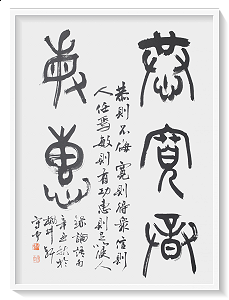 恭寬信
敏惠
恭則不侮寬則得眾信則
人任焉敏則有功惠則足使人
論語句
辛丑秋於